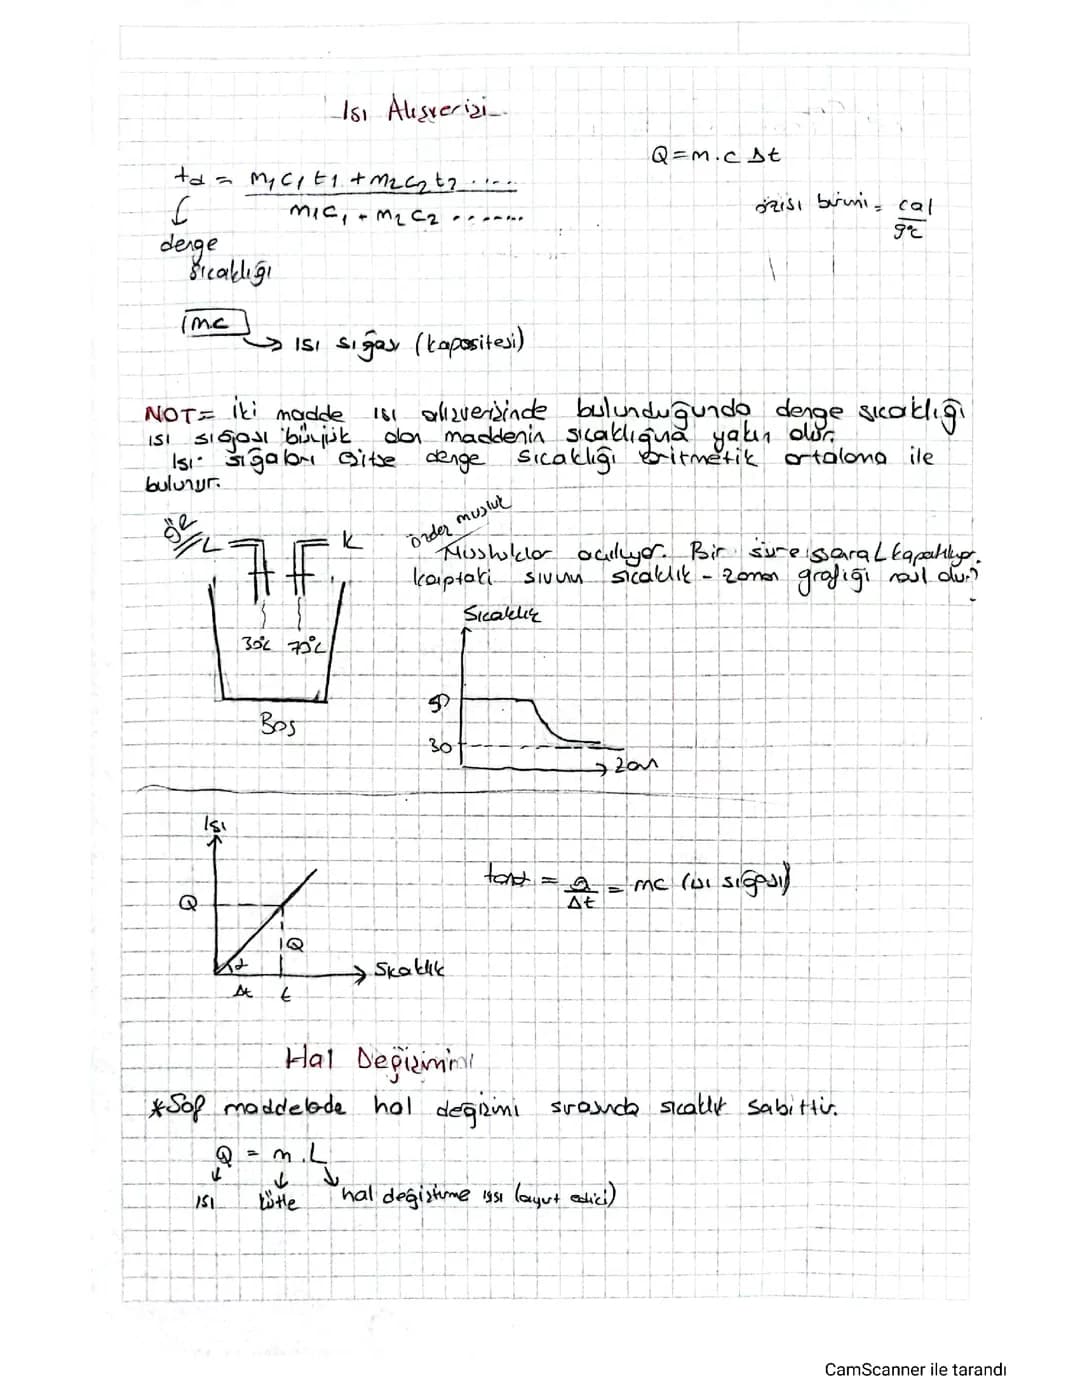 Isı Alışverişi
Q=m.c Δt
td = m1c1t1 + m2c2t2 .....
m1c1 + m2c2 .......
özısı birimi = cal
g°c
denge
sıcaklığı
mc
→ ısı sığası (kapasitesi)
NOT= İki madde ısı alışverişinde bulunduğunda denge sıcaklığı
ısı sığası büyük olan maddenin sıcaklığına yakın olur.
Isı sığaları eşitse denge sıcaklığı aritmetik ortalama ile
bulunur.
ör//
L
K
özdeş musluk
Musluklar açılıyor. Bir süre sonra L kapatılıyor.
kaptaki sıvının sıcaklık - zaman grafiği nasıl olur?
Sıcaklık
30°c 70°c
50
Boş
30
zam
Isı
tanα = Q = mc (ısı sığası)
Δt
Q
Q
α
Sıcaklık
Δt t
Hal Değişimi
*Saf maddelerde hal değişimi sırasında sıcaklık sabittir.
Q = m.L
ısı kütle hal değiştirme ısısı (ayırt edici)
CamScanner ile tarandı